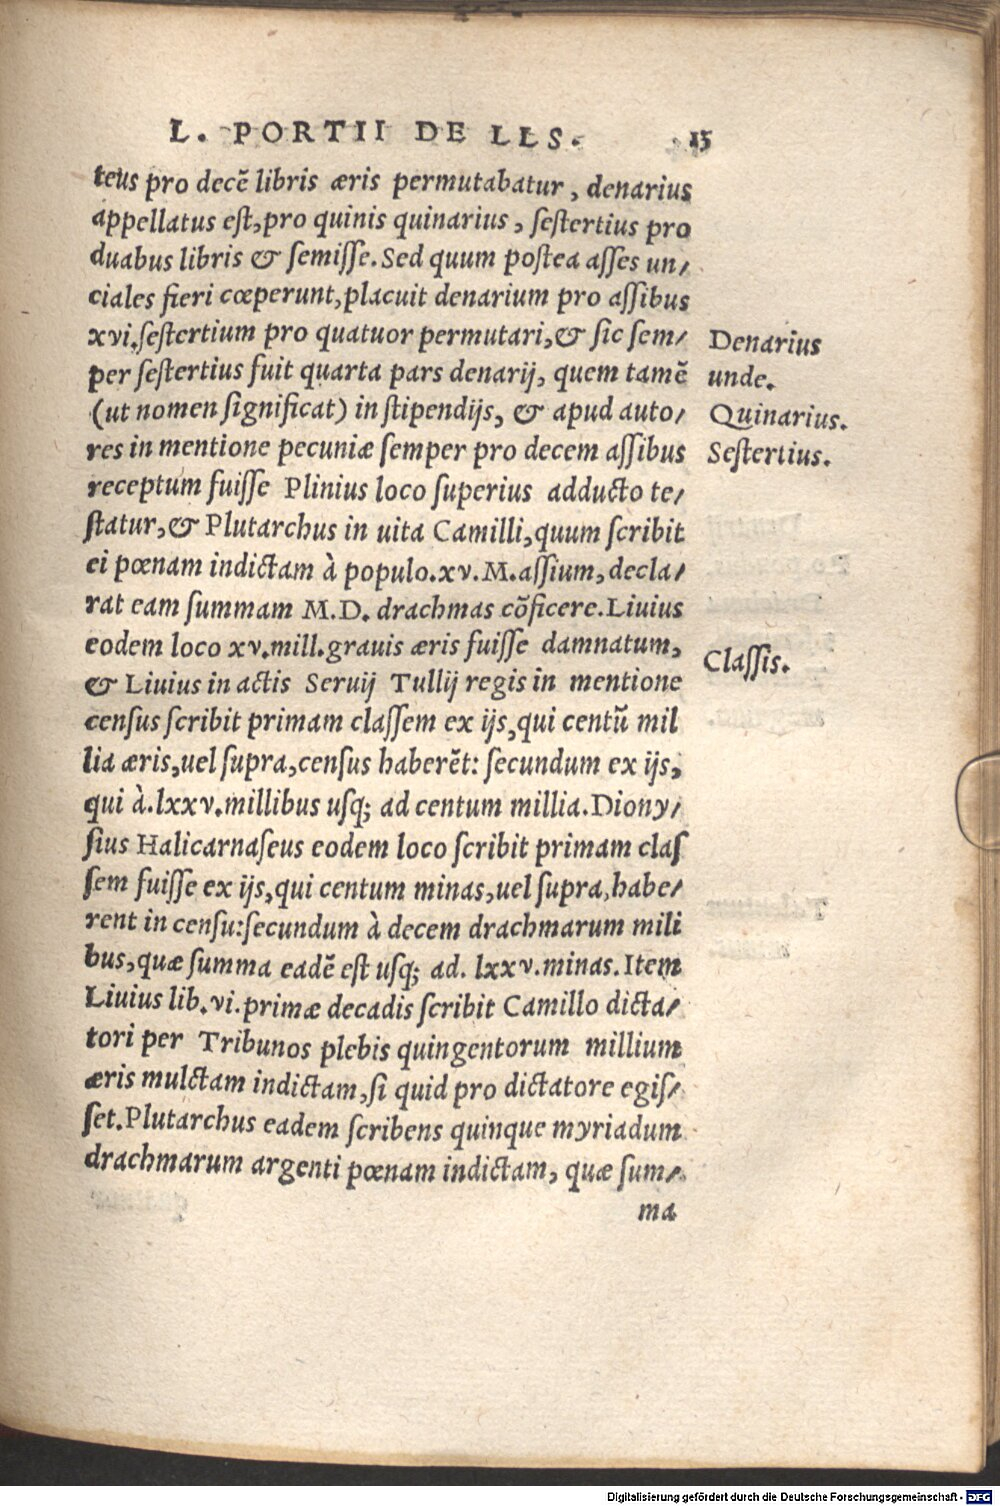 L. PORTII DE LLS. 15
teus pro decē libris æris permutabatur, denarius
appellatus est, pro quinis quinarius, sestertius pro
duabus libris & semisse. Sed quum postea asses un/
ciales fieri cœperunt, placuit denarium pro assibus
xvi. sestertium pro quatuor permutari, & sic sem/
per sestertius fuit quarta pars denarij, quem tamē
(ut nomen significat) in stipendijs, & apud auto/
res in mentione pecuniæ semper pro decem assibus
receptum fuisse Plinius loco superius adducto te/
statur, & Plutarchus in uita Camilli, quum scribit
ei pœnam indictam à populo. xv. M. assium, decla/
rat eam summam M.D. drachmas cōficere. Liuius
eodem loco xv. mill. grauis æris fuisse damnatum,
& Liuius in actis Seruij Tullij regis in mentione
census scribit primam classem ex ijs, qui centū mil
lia æris, uel supra, census haberēt: secundum ex ijs,
qui à. lxxv. millibus usq; ad centum millia. Diony/
sius Halicarnaseus eodem loco scribit primam clas
sem fuisse ex ijs, qui centum minas, uel supra, habe/
rent in censu: secundum à decem drachmarum mili
bus, quæ summa eadē est usq; ad. lxxv. minas. Item
Liuius lib. vi. primæ decadis scribit Camillo dicta/
tori per Tribunos plebis quingentorum millium
æris mulctam indictam, si quid pro dictatore egis/
set. Plutarchus eadem scribens quinque myriadum
drachmarum argenti pœnam indictam, quæ sum/
ma
Denarius
unde.
Quinarius.
Sestertius.
Classis.
Digitalisierung gefördert durch die Deutsche Forschungsgemeinschaft - DFG